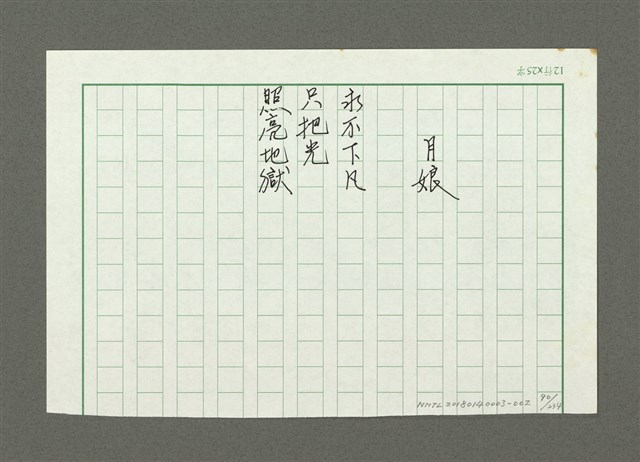 12行×25字
月娘
永不下凡
只把光
照亮地獄
NMTL20180140003-002
90/234